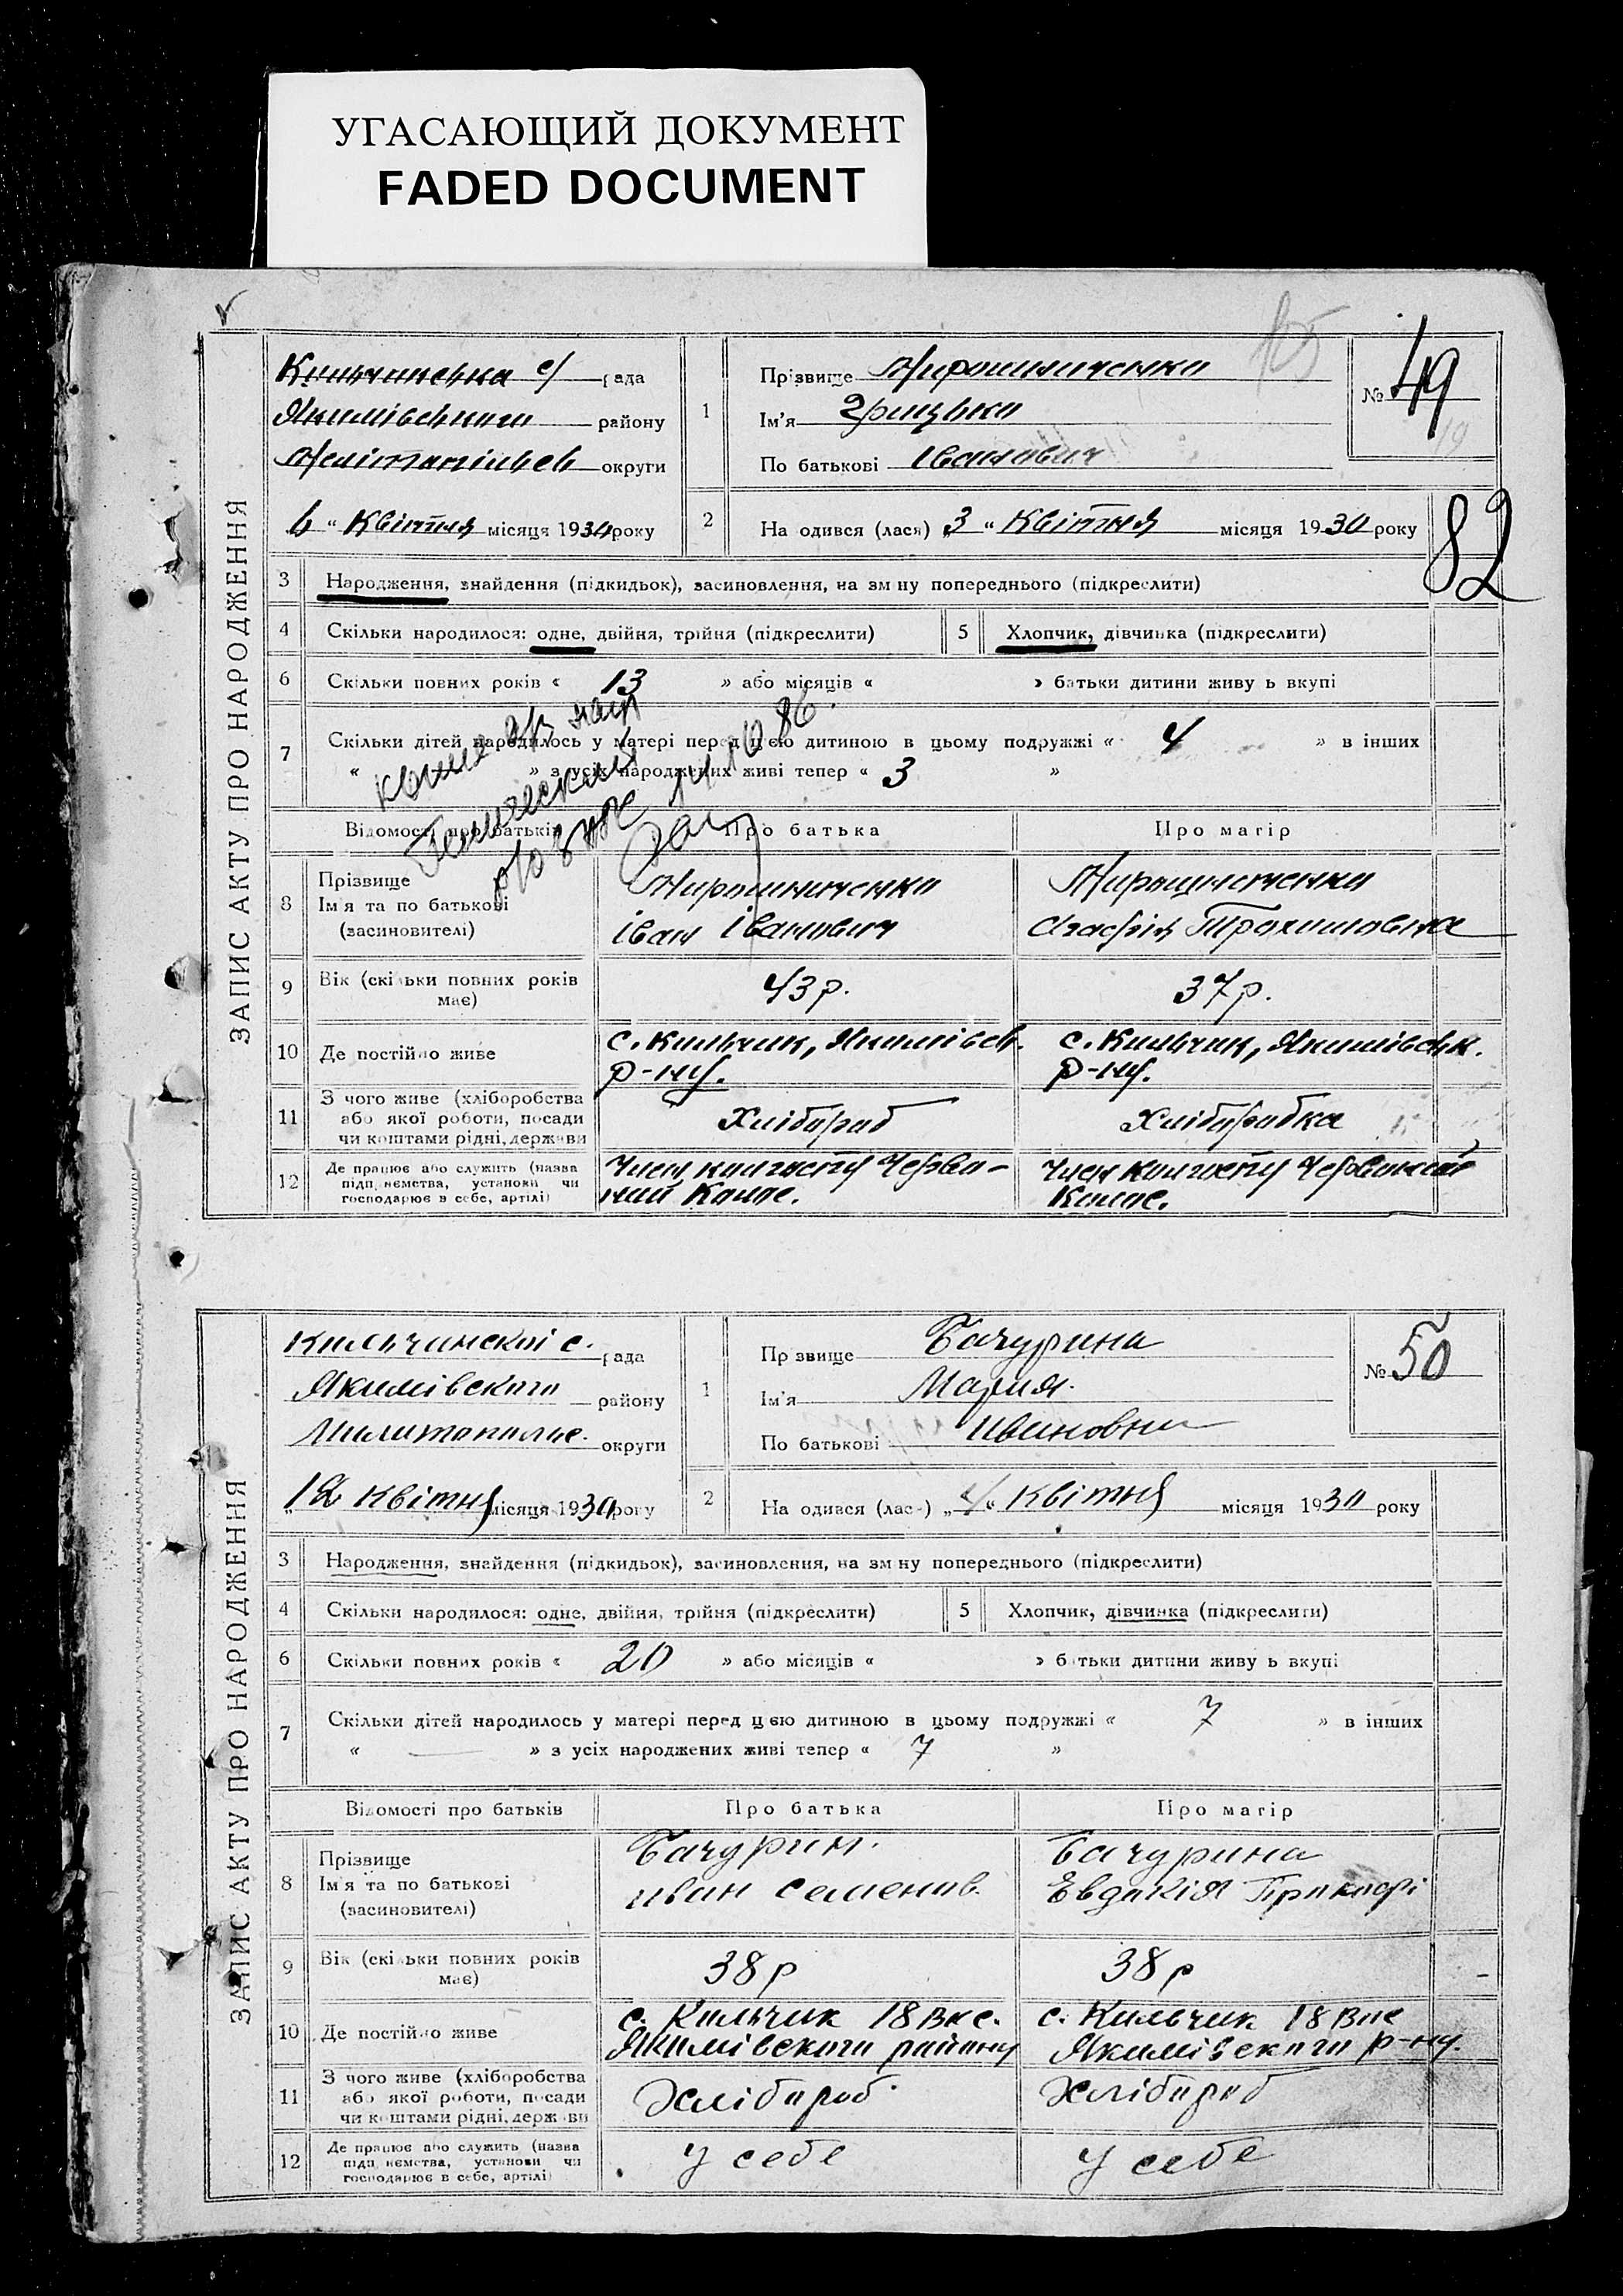 УГАСАЮЩИЙ ДОКУМЕНТ
FADED DOCUMENT
ЗАПИС АКТУ ПРО НАРОДЖЕННЯ
105
с/ рада
Якимівського району
округи
„ Квітня місяця 1930 року
1
Прізвище Мирошниченко
Ім'я Грицько
По батькові Іванович
№ 49
19
2
На одився (лася) „3“ Квітня місяця 1930 року
82
3 Народження, знайдення (підкидьок), засиновлення, на зм ну попереднього (підкреслити)
4 Скільки народилося: одне, двійня, трійня (підкреслити)
5 Хлопчик, дівчинка (підкреслити)
6 Скільки повних років « 13 » або місяців « » батьки дитини живу ь вкупі
7 Скільки дітей народилось у матері перед цією дитиною в цьому подружжі « 4 » в інших
« » з усіх народжених живі тепер « 3 »
Відомості про батьків
Про батька
Про матір
8 Прізвище
Ім'я та по батькові
(засиновителі)
Мирошниченко
Іван Іванович
Мирошниченко
Агафія Трохимовна
9 Вік (скільки повних років
має)
43 р.
37 р.
10 Де постійно живе
с. Кильчик, Якимівск.
р-ну.
с. Кильчик, Якимівськ.
р-ну.
11 З чого живе (хліборобства
або якої роботи, посади
чи коштами рідні, держави
Хлібороб
Хліборобка
12 Де працює або служить (назва
підп, немства, установи чи
господарює в себе, артілі)
Член колгоспу Черво-
ний
Член колгоспу Червоний
ЗАПИС АКТУ ПРО НАРОДЖЕННЯ
Кильчинскої с. рада
Якимівского району
Милитопольс. округи
„12 Квітня місяця 1930 року
1
Пр звище Бачурина
Ім'я Мария.
По батькові Ивановна
№ 50
2
На одився (лас-) „4“ Квітня місяця 1930 року
3 Народження, знайдення (підкидьок), засиновлення, на зм ну попереднього (підкреслити)
4 Скільки народилося: одне, двійня, трійня (підкреслити)
5 Хлопчик, дівчинка (підкреслити)
6 Скільки повних років « 20 » або місяців « » батьки дитини живу ь вкупі
7 Скільки дітей народилось у матері перед цією дитиною в цьому подружжі « 7 » в інших
« — » з усіх народжених живі тепер « 7 »
Відомості про батьків
Про батька
Про матір
8 Прізвище
Ім'я та по батькові
(засиновителі)
Бачурин.
Иван Семенов.
Бачурина
Евдокія
9 Вік (скільки повних років
має)
38 р
38 р
10 Де постійно живе
с. Кильчик 18
Якимівского району
с. Кильчик 18
Якимівского р-ну.
11 З чого живе (хліборобства
або якої роботи, посади
чи коштами рідні, держави
Хлібороб
Хлібороб
12 Де працює або служить (назва
підп, немства, установи чи
господарює в себе, артілі)
У себе
У себе